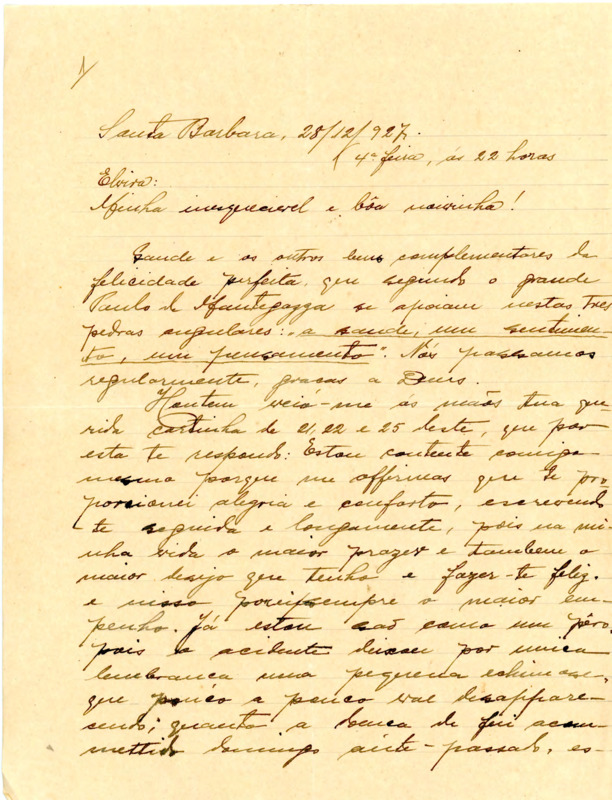 1/
Santa Barbara, 28/12/927.
4ª feira, ás 22 horas
Elvira:
Minha inesquecivel e bôa noivinha!
Saude e os outros bens complementares da
felicidade perfeita, que segundo o grande
Paulo de Mantegazza se apoiam nestas tres
pedras angulares: "a saude, um sentimen-
to, um pensamento". Nós passamos
regularmente, graças a Deus.
Hontem veiô-me ás mãos tua que
rida cartinha de 21, 22 e 25 deste, que por
esta te respondo: Estou contente comigo
mesmo porque me affirmas que te pro-
porcionei alegria e conforto, escrevendo
te seguida e longamente, pois na mi-
nha vida o maior prazer e tambem o
maior desejo que tenho e fazer-te feliz.
e nisso sempre o maior em-
penho. Já estou são como um pêro,
pois o acidente deixou por unica
lembrança uma pequena echimose,
que pouco a pouco vae desappare-
cendo; quanto a de fui acom-
mettido domingo ante-passado, es-